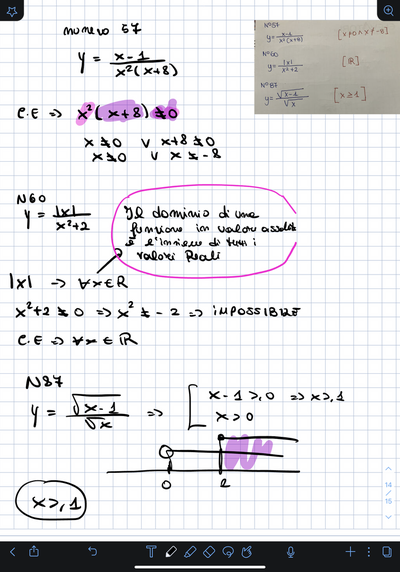 numero 57
y = x-1 / x²(x+8)
C.E => x²(x+8) ≠ 0
x ≠ 0 ∨ x+8 ≠ 0
x ≠ 0 ∨ x ≠ -8
N°57
y = x-1 / x²(x+8) [x ≠ 0 ∧ x ≠ -8]
N°60
y = |x| / x²+2 [ℝ]
N°87
y = √x-1 / √x [x ≥ 1]
N60
y = |x| / x²+2
Il dominio di una
funzione in valore assoluto
è l'insieme di tutti i
valori Reali
|x| → ∀x∈ℝ
x²+2 ≠ 0 => x² ≠ -2 => IMPOSSIBILE
C.E => ∀x ∈ ℝ
N87
y = √x-1 / √x => x-1 ≥ 0 => x ≥ 1
x > 0
0
x ≥ 1
14
/
15
T